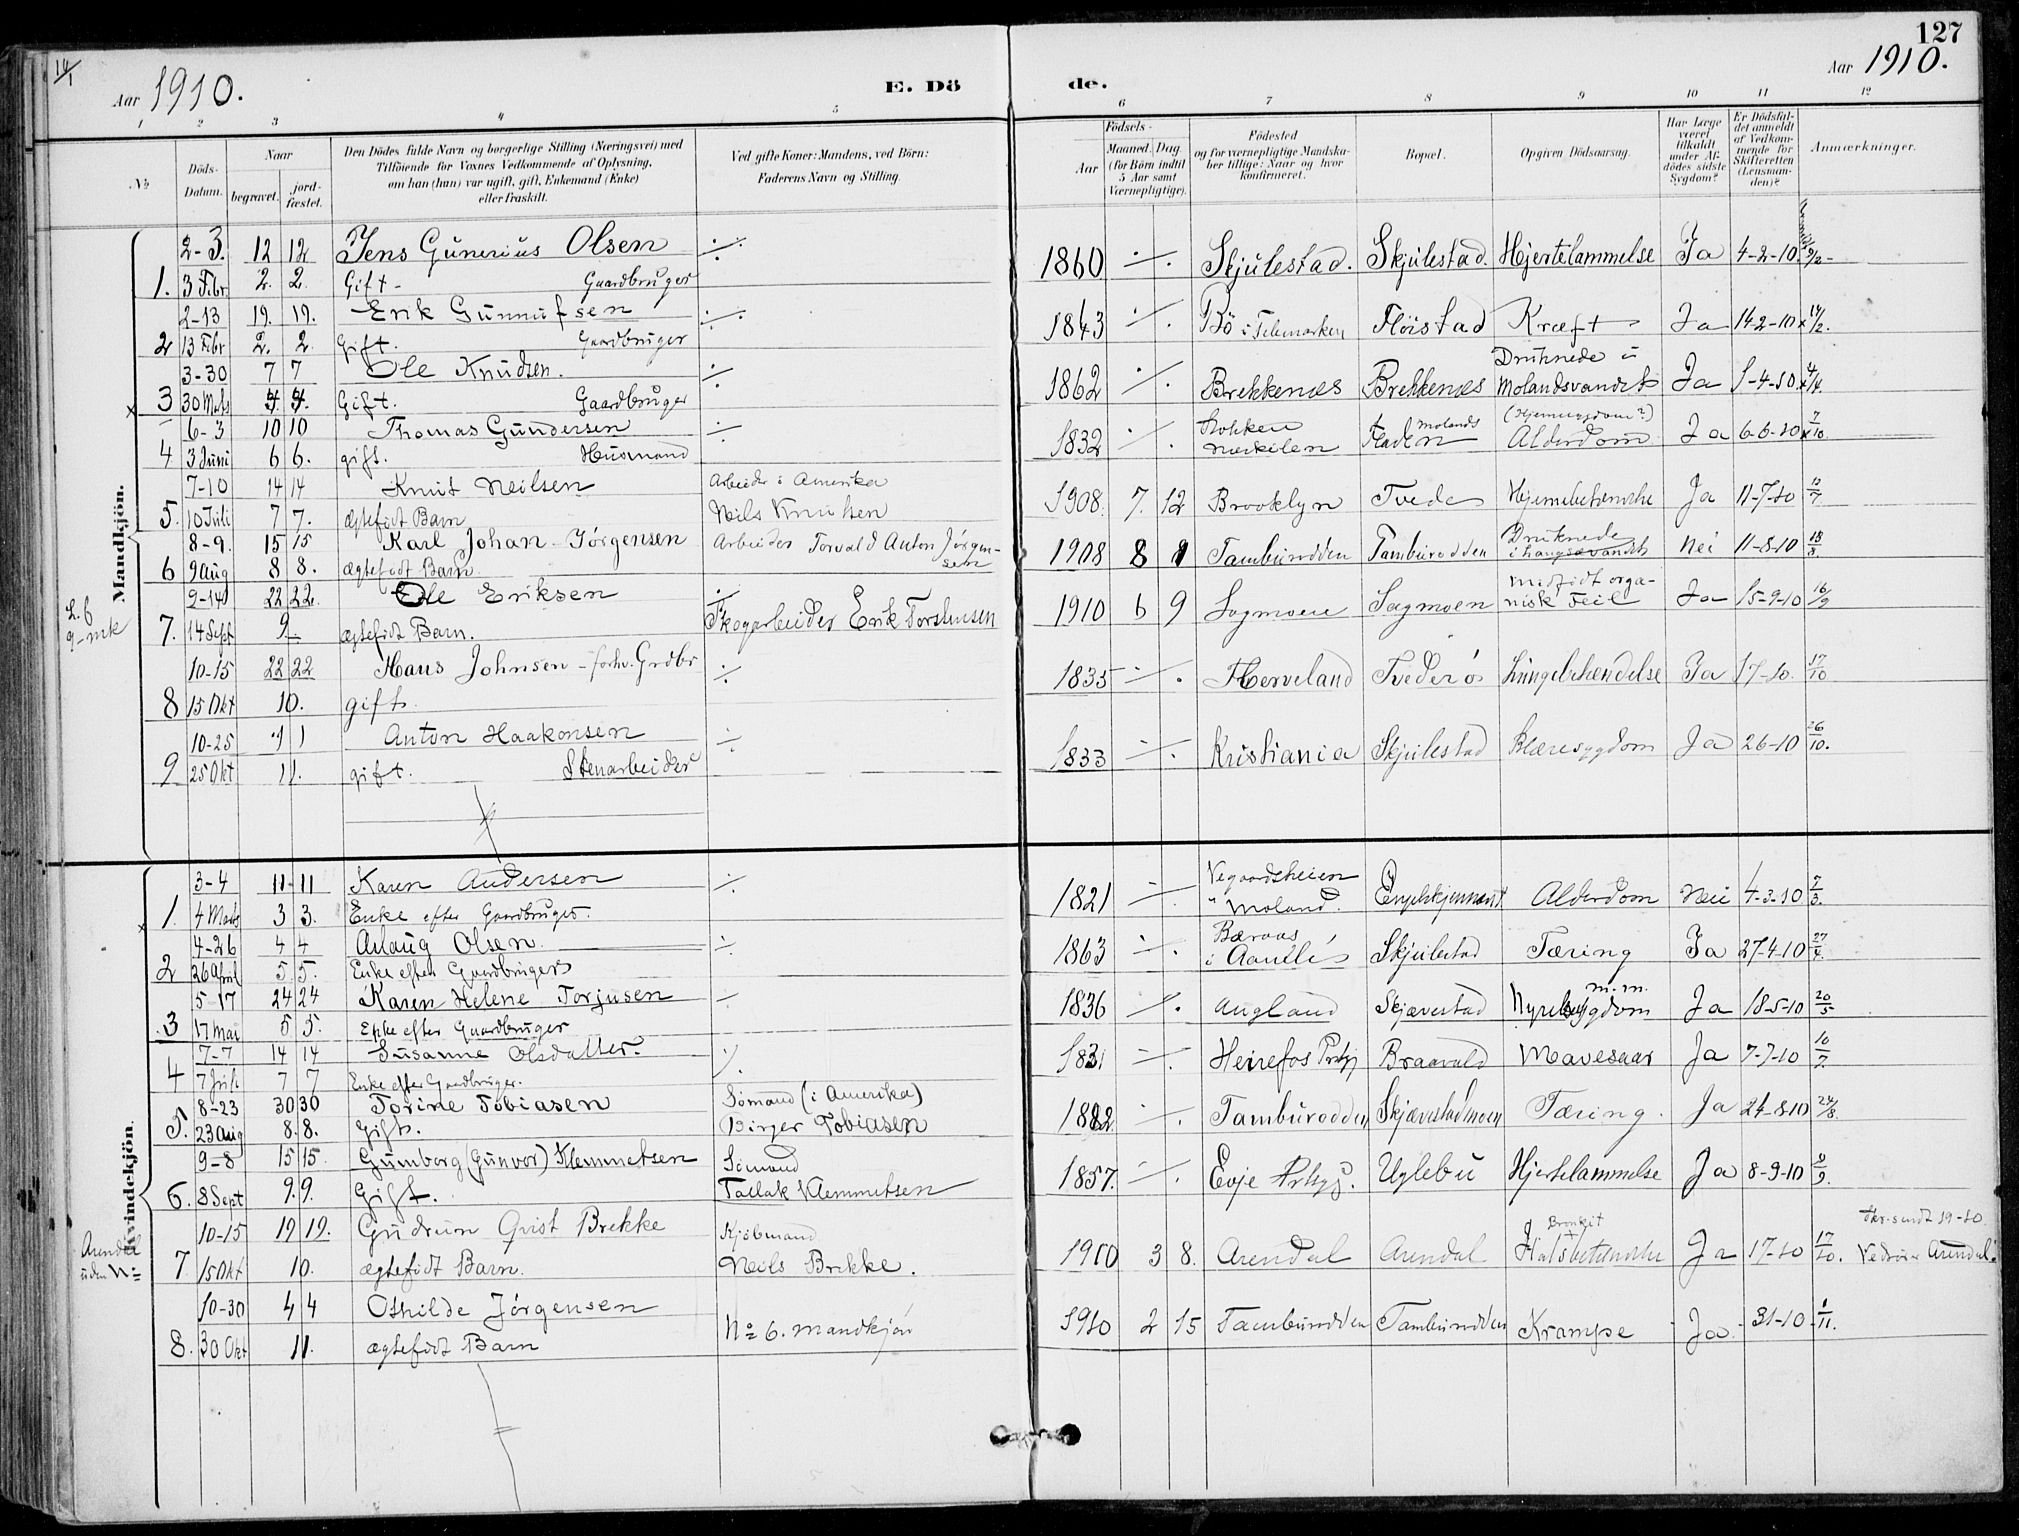 127
14/1
Aar 1910.
E. Dö
de.
Aar 1910.
1 2 3 4 5 6 7 8 9 10 11 12
No
Döds-Datum.
Naar
begravet.
jord-fæstet.
Den Dödes fulde Navn og borgerlige Stilling (Næringsvei) med
Tilföiende for Voxnes Vedkommende af Oplysning,
om han (hun) var ugift, gift, Enkemand (Enke)
eller fraskilt.
Ved gifte Koner: Mandens, ved Börn:
Faderens Navn og Stilling.
Födsels-
Aar
Maaned. Dag
(for Börn indtil
5 Aar samt
Værnepligtige).
Födested
og for værnepligtige Mandska-
ber tillige: Naar og hvor
konfirmeret.
Bopæl.
Opgiven Dödsaarsag.
Har Læge
været
tilkaldt
under Af-
dödes sidste
Sygdom?
Er Dödsfal-
det anmeldt
af Vedkom-
mende for
Skifteretten
(Lensman-
den)?
Anmærkninger.
Mandkjön.
2-3. 12 12 Jens Gunerius Olsen ·/· 1860 ·/· Skjulestad. Skjulestad. Hjertelammelse Ja 4-2-10. 9/2-
1. 3 Febr. 2. 2. Gift- Gaardbruger
2-13 19. 19. Erik Gunnufsen ·/· 1843 ·/· Bö i Telemarken Flöistad Kræft Ja 14-2-10 x 14/2.
2 13 Febr 2. 2 Gift. Gaardbruger
3-30 7 7 Ole Knudsen. ·/· 1862 ·/· Brekkenæs Brekkenæs Druknede i Molandsvandet Ja 1-4-10 x 4/4.
x 3 30 Mars 4. 4. Gift. Gaardbruger
6-3 10 10 Thomas Gundersen ·/· 1832 ·/· Molands (Hjernesygdom?) Alderdom Ja 6-6-10 x 7/10.
4 3 Juni 6 6. gift. Husmand
7-10 14 14 Knut Neilsen Arbeider i Amerika 1908. 7. 12 Brooklyn Tvede Hjernebetændelse Ja 11-7-10 12/7.
5. 10 Juli 7 7. ægtefödt Barn Neils Knutsen
8-9. 15 15 Karl Johan Jörgensen Arbeider Torvald Anton Jörgen-sen 1908 8 9 Tamburodden Tamburodden Druknede i Langsævandet Nei 11-8-10 18/8.
6 9 Aug 8 8. ægtefödt Barn.
L. 6
9-mk
9-14 22 22. Ole Eriksen ·/· 1910 6 9 Sagmoen Sagmoen medfödt orga-nisk Feil Ja 15-9-10 16/9
7. 14 Sept 9 ægtefödt Barn. Skogarbeider Erik Torstensen
10-15 22 22 Hans Johnsen - forhv. Grdbr ·/· 1835 ·/· Herveland Tvederö Lungebetændelse Ja 17-10. 17/10
8 15 Okt 10. gift.
10-25 1 1 Anton Haakonsen ·/· 1833 ·/· Kristiania Skjulestad Blæresygdom Ja 26-10 26/10.
9 25 Okt 11. gift. Stenarbeider
Kvindekjön.
3-4 11 11 Karen Andersen ·/· 1821 ·/· Vegaardsheien Moland. Alderdom Nei 4-3-10 7/3.
x 1. 4 Mars 3 3. Enke efter Gaardbruger.
4-26 4 4 Aslaug Olsen ·/· 1863 ·/· Skjulestad Tæring Ja 27-4-10 27/4.
2 26 April 5 5. Enke efter Gaardbruger
5-17 24 24 Karen Helene Torjusen ·/· 1836 ·/· Augland Skjævestad Nyresygdom m.m. Ja 18-5-10 20/5
3 17 Mai 5 5. Enke efter Gaardbruger
7-7 14 14 Susanne Olsdatter. ·/· 1831 ·/· Heirefos Prstgj Braavold Mavesaar Ja 7-7-10 10/7.
4 7 Juli 7 7 Enke efter Gaardbruger.
8-23 30 30 Torine Tobiasen Sömand (i Amerika) 1882 ·/· Tamburodden Skjævestadmoen Tæring. Ja 24-8-10 24/8.
5. 23 Aug 8. 8. Gift. Birger Tobiasen
9-8 15 15. Gumborg (Gunvor) Klemmetsen Sömand 1857. ·/· Evje Prstgj. Uglebu Hjertelammelse Ja 8-9-10 8/9.
6. 8 Sept 9. 9. Gift. Tallak Klemmetsen
Arendal
uden No
10-15 19 19. Gudrun Qvist Brekke Kjöbmand 1910 3 8. Arendal Arendal Bronkit Halsbetændelse Ja 17-10 17/10. Skr. sendt 19-10
7. 15 Okt 10. ægtefödt Barn. Neils Brekke. Vedrörer Arendal.
10-30 4 4 Othilde Jörgensen No 6. Mandkjön 1910 2 15 Tamburodden Tamburodden Krampe Ja 31-10 1/11.
8. 30 Okt 11. ægtefödt Barn